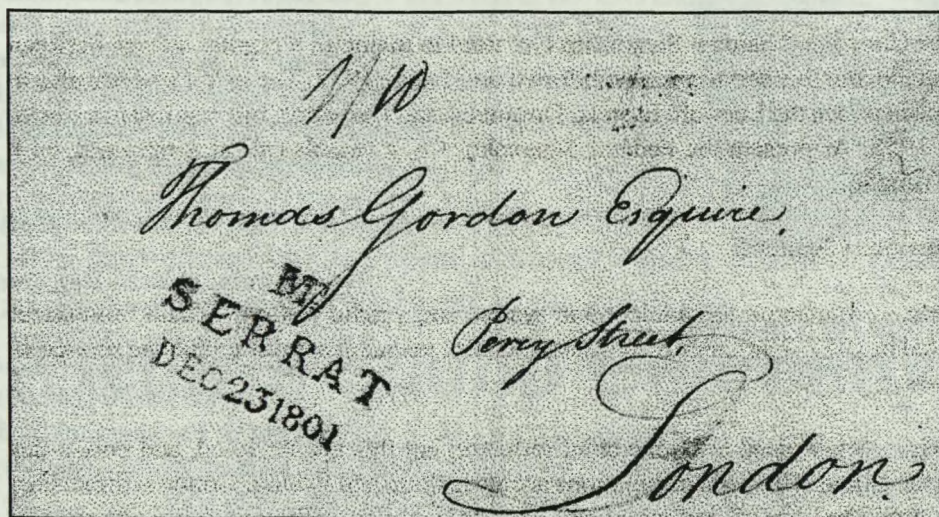 1/10
Thomas Gordon Esquire.
MT
SERRAT
DEC 23 1801
Percy Street,
London.